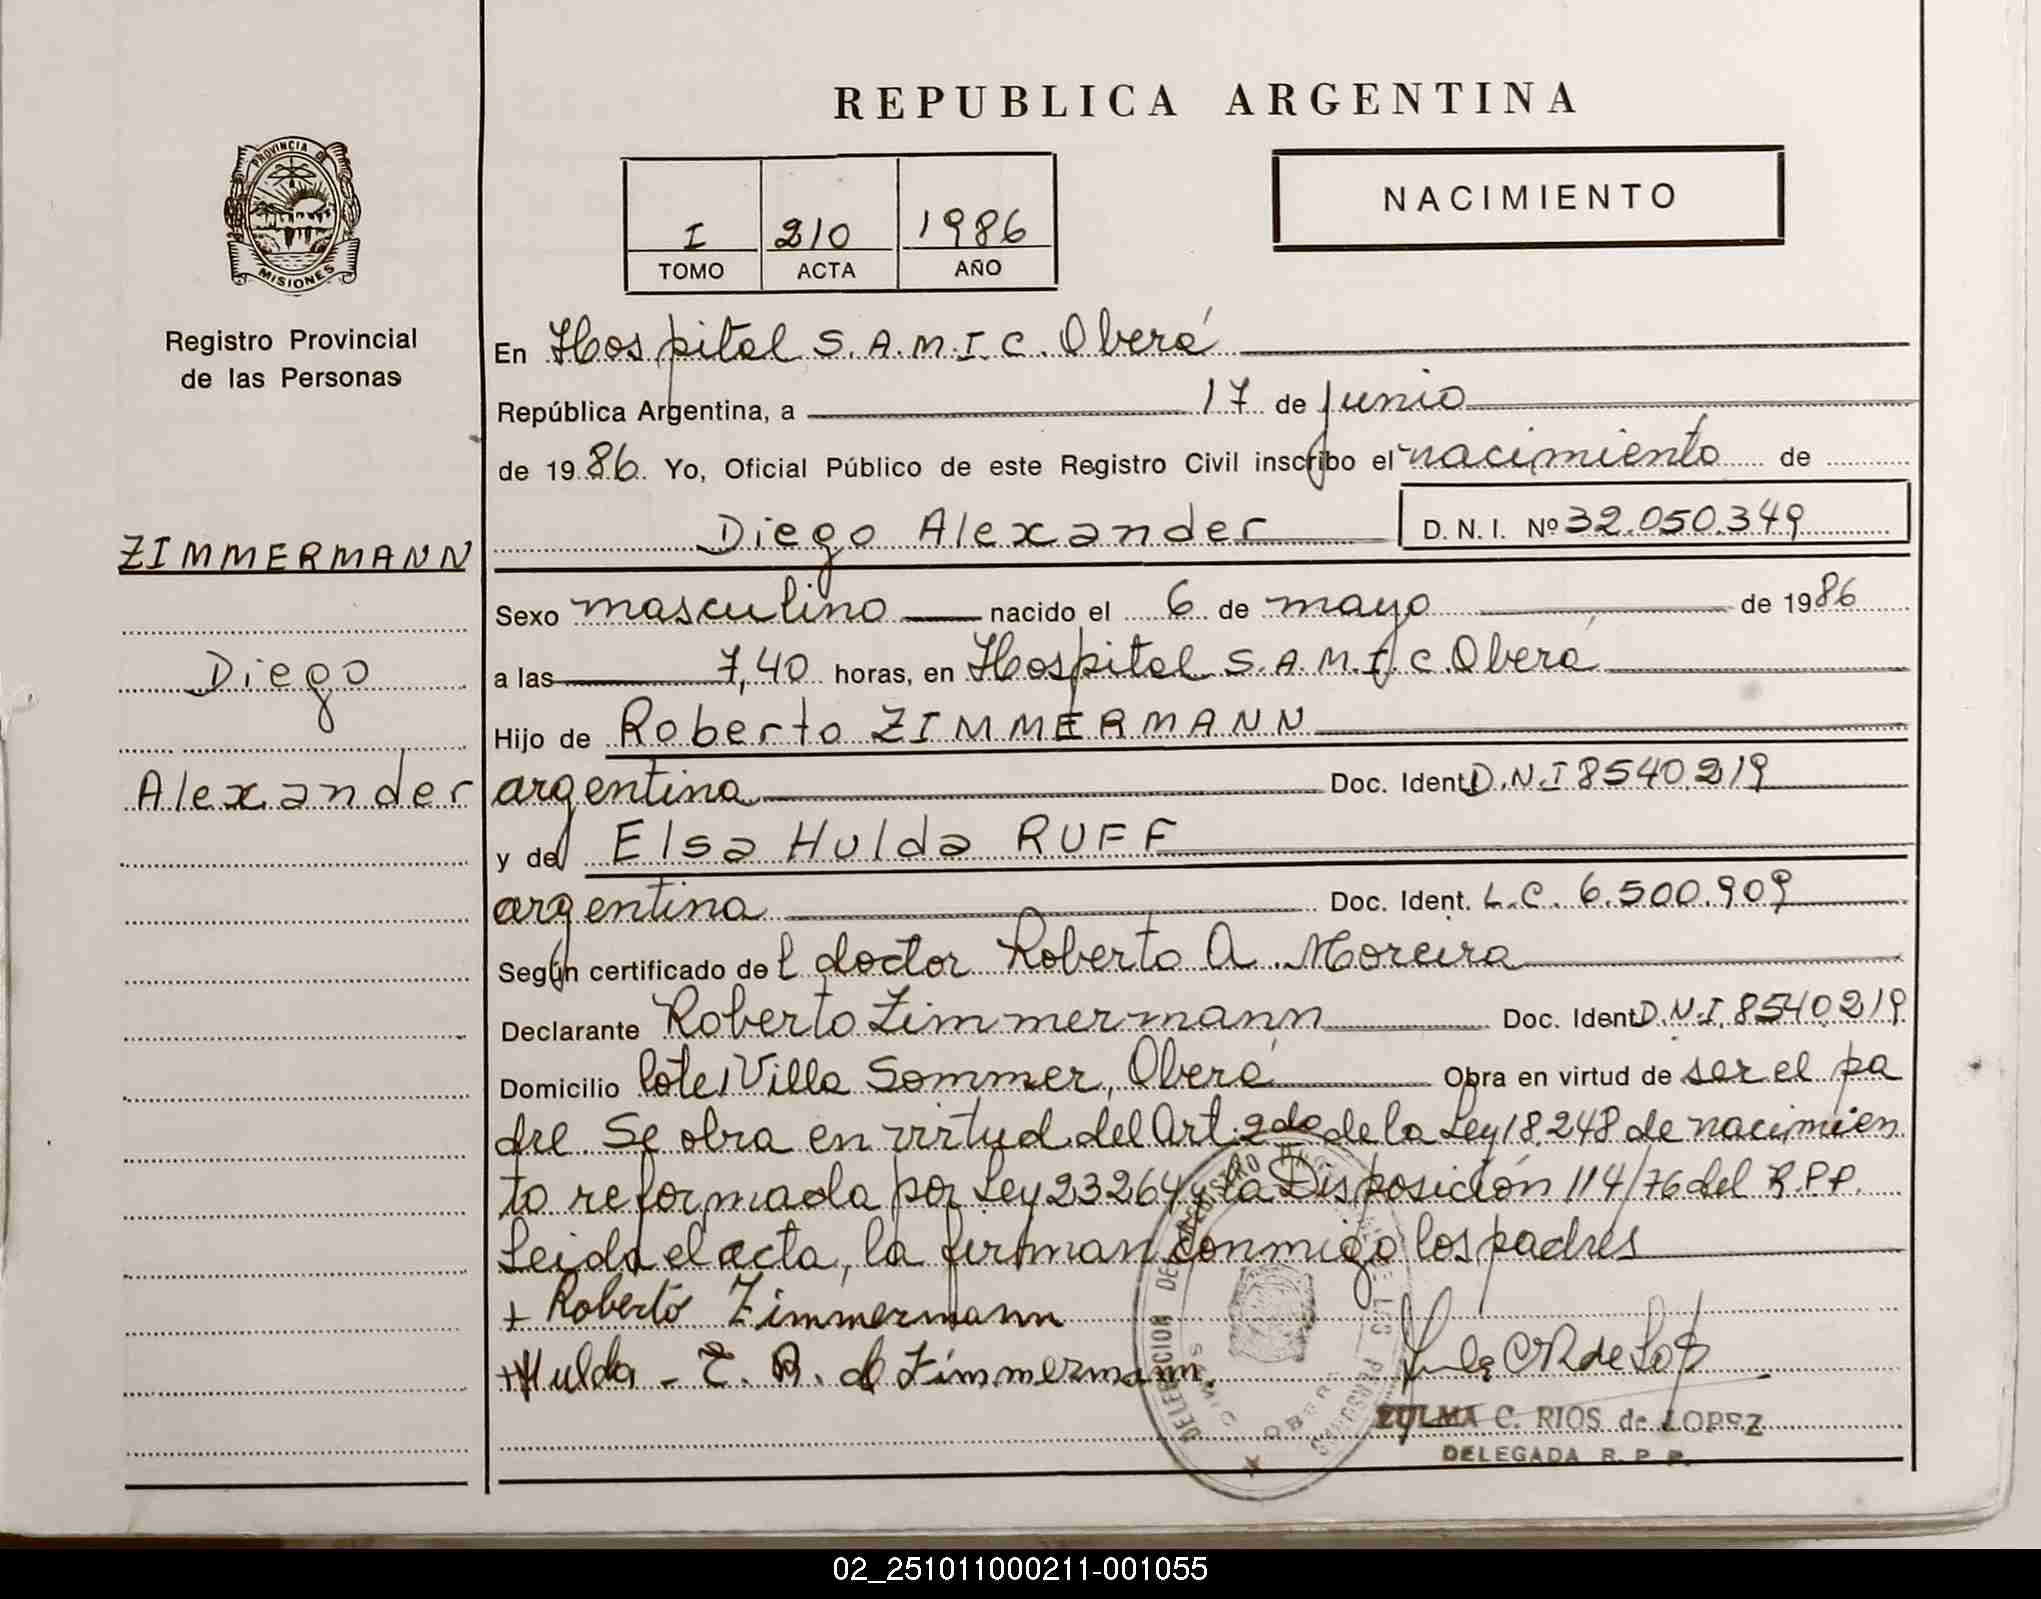 REPUBLICA ARGENTINA
PROVINCIA D
MISIONES
Registro Provincial
de las Personas
ZIMMERMANN
Diego
Alexander
I 210 1986
TOMO ACTA AÑO
NACIMIENTO
En Hospital S.A.M.I.C. Oberá
República Argentina, a 17 de junio
de 1986. Yo, Oficial Público de este Registro Civil inscribo el nacimiento de
Diego Alexander D. N. I. Nº 32.050.349
Sexo masculino nacido el 6 de mayo de 1986
a las 7,40 horas, en Hospital S.A.M.I.C. Oberá
Hijo de Roberto ZIMMERMANN
argentina Doc. Ident. D.N.I 8540219
y de Elsa Hulda RUFF
argentina Doc. Ident. L.C. 6.500.909
Según certificado del doctor Roberto A. Moreira
Declarante Roberto Zimmermann Doc. Ident. D.N.I. 8540219
Domicilio lote 1 Villa Sommer, Oberá Obra en virtud de ser el pa
dre. Se obra en virtud del Art. 2do de la Ley 18.248 de nacimien
to reformada por Ley 23264 y la Disposición 114/76 del R.P.P.
Leida el acta, la firman conmigo los padres
+ Roberto Zimmermann
+ Hulda - E. R. d Zimmermann.
ZULMA C. RIOS de LOPEZ
DELEGADA R. P. P.
DELEGACION OBERA
02_251011000211-001055